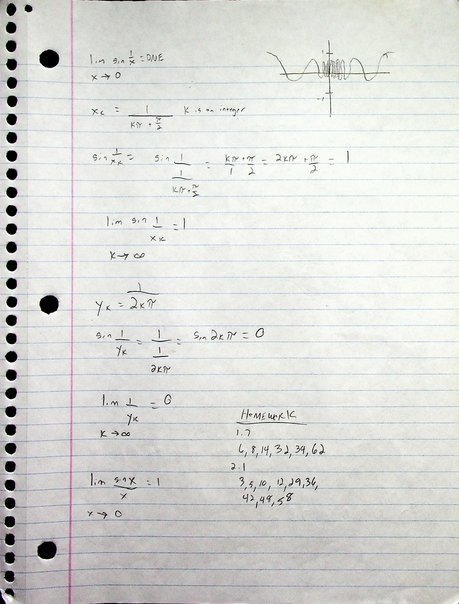 lim sin 1/x = DNE
x → 0
1
-1
x_k = 1/(kπ + π/2) k is an integer
sin 1/x_k = sin 1/(1/(kπ + π/2)) = kπ/1 + π/2 = 2kπ + π/2 = 1
lim sin 1/x_k = 1
k → ∞
y_k = 1/2kπ
sin 1/y_k = 1/(1/2kπ) = sin 2kπ = 0
lim 1/y_k = 0
k → ∞
HOMEWORK
1.7
6, 8, 14, 32, 34, 62
2.1
3, 5, 10, 12, 29, 36,
42, 48, 58
lim sin x/x = 1
x → 0